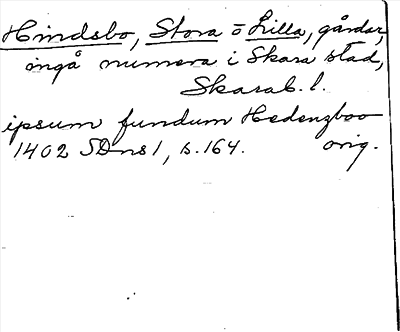 Hindsbo, Stora o Lilla, gårdar,
ingå numera i Skara stad,
Skarab. l.
ipsum fundum Hedenzboo
1402 SDns 1, s. 164. orig.